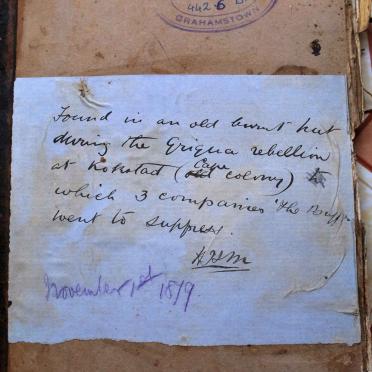 442 6
GRAHAMSTOWN
Found in an old burnt hut
during the Griqua rebellion
at Kokstad (Cape colony) to
which 3 companies "the Buffs
went to suppress.
November 1st 1879.